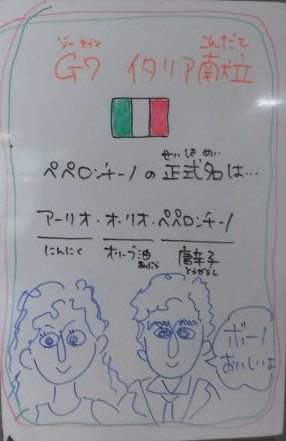 ジーセブン こんだて
G7 イタリア献立
せいしきめい
ペペロンチーノの正式名は…
アーリオ・オーリオ・ペペロンチーノ
にんにく オリーブ油 唐辛子
あぶら とうがらし
ボーノ
おいしいよ